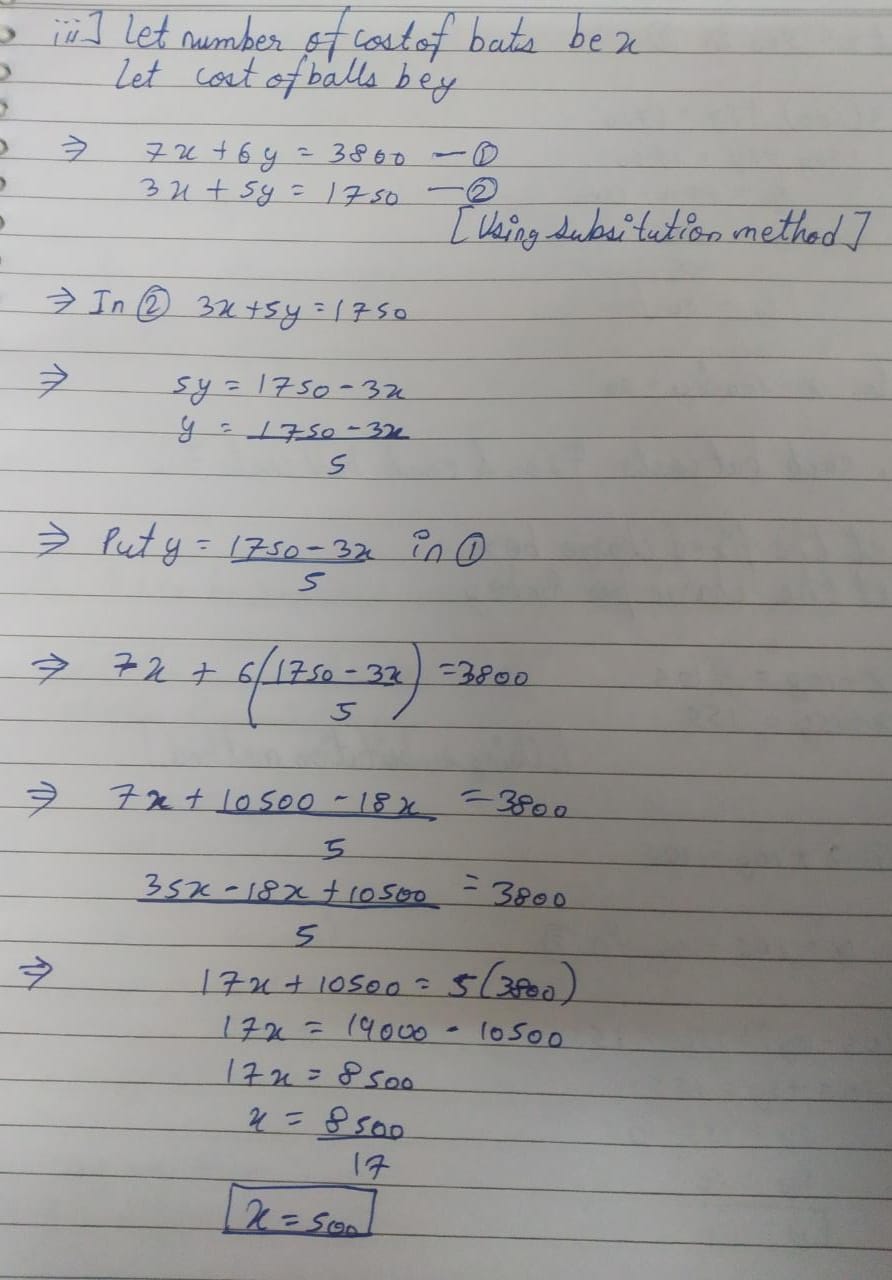 iii] Let number of cost of bats be x
Let cost of balls be y
⇒ 7x + 6y = 3800 — ①
3x + 5y = 1750 — ②
[Using subsitution method]
⇒ In ② 3x + 5y = 1750
⇒ 5y = 1750 - 3x
y = 1750 - 3x
5
⇒ Put y = 1750 - 3x in ①
5
⇒ 7x + 6(1750 - 3x) = 3800
5
⇒ 7x + 10500 - 18x = 3800
5
35x - 18x + 10500 = 3800
5
⇒ 17x + 10500 = 5(3800)
17x = 19000 - 10500
17x = 8500
x = 8500
17
x = 500